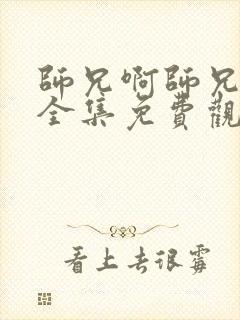 師兄啊師兄
全集免費觀
看上去很霉